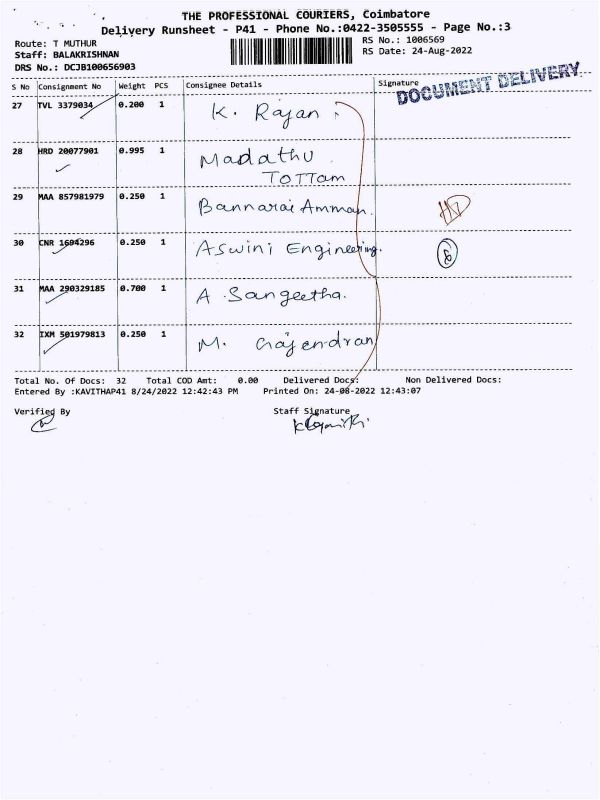 THE PROFESSIONAL COURIERS, Coimbatore
Delivery Runsheet - P41 - Phone No.:0422-3505555 - Page No.:3
Route: T MUTHUR
RS No.: 1006569
Staff: BALAKRISHNAN
RS Date: 24-Aug-2022
DRS No.: DCJB100656903
S No Consignment No Weight PCS Consignee Details Signature
DOCUMENT DELIVERY
27 TVL 3379034 0.200 1 K. Rajan
28 HRD 20077901 0.995 1 Madathu
TOTTam
29 MAA 857981979 0.250 1 Bannarai Amman.
30 CNR 1694296 0.250 1 Aswini Engineering. 8
31 MAA 290329185 0.700 1 A Sangeetha.
32 IXM 501979813 0.250 1 M. Gajendran
Total No. Of Docs: 32 Total COD Amt: 0.00 Delivered Docs: Non Delivered Docs:
Entered By :KAVITHAP41 8/24/2022 12:42:43 PM Printed On: 24-08-2022 12:43:07
Verified By Staff Signature